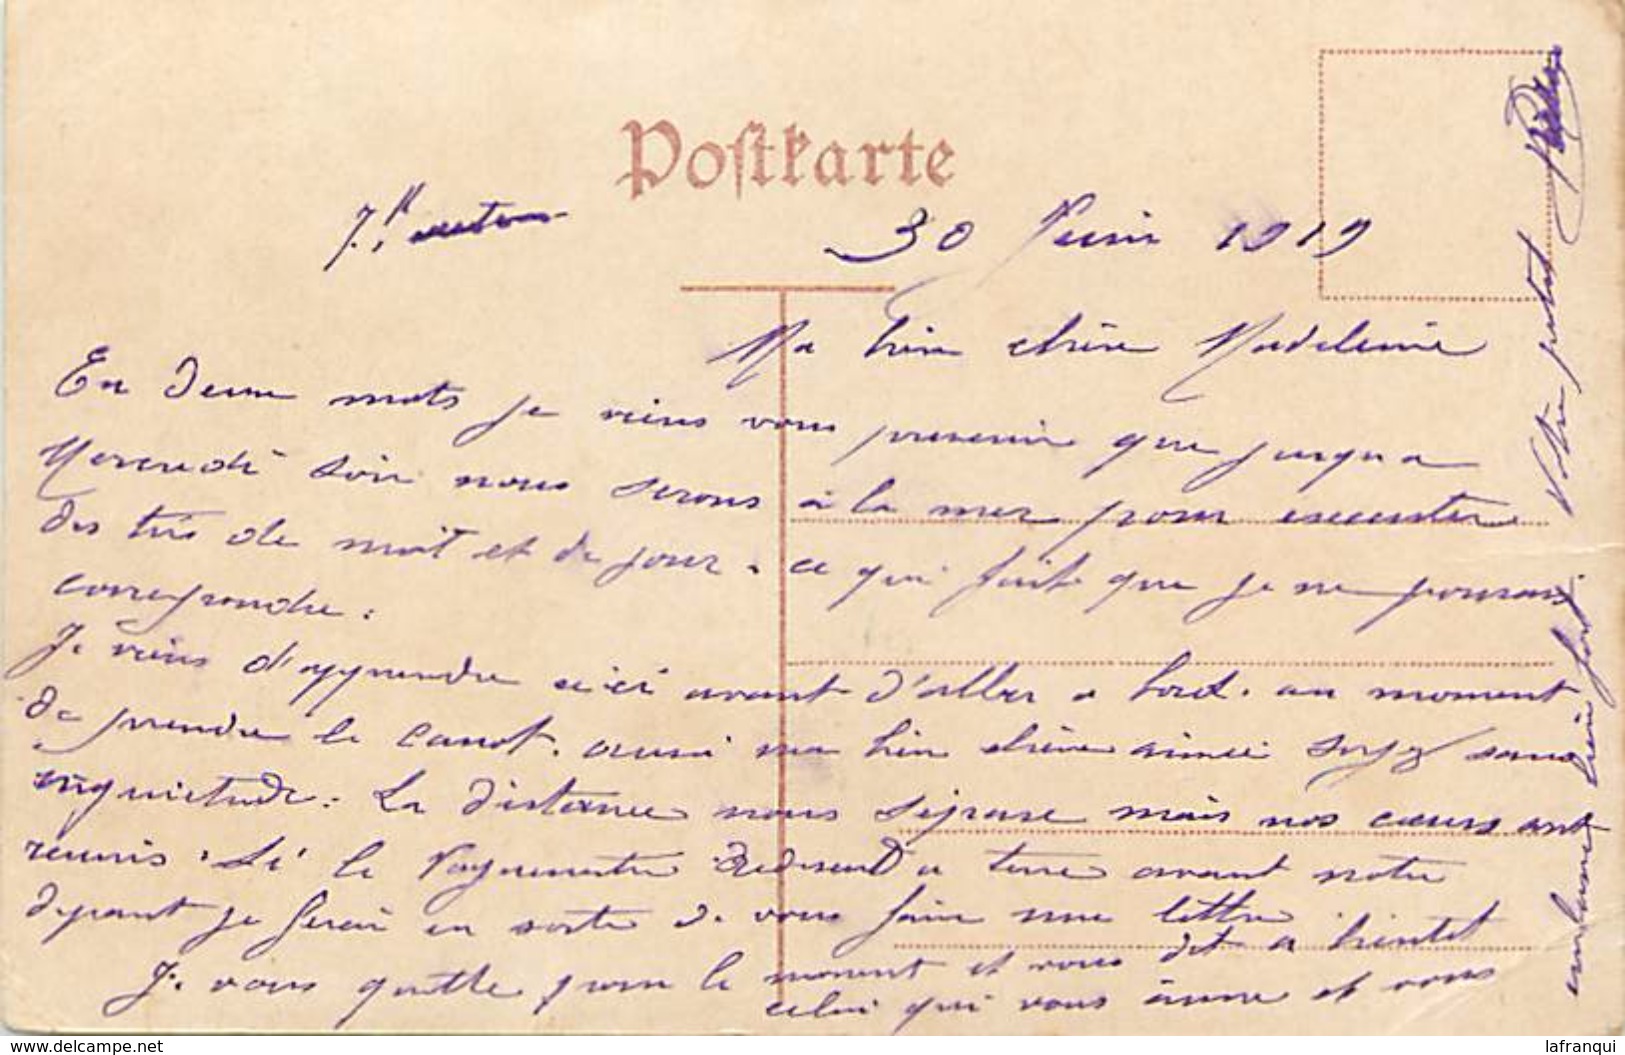 Postkarte
30 Juin 1919
Ma bien chère Madeleine
En deux mots je viens vous prevenir que jusqu a
Mercredi soir nous serons à la mer pour executer
des tirs de nuit et de jour. ce qui fait que je ne pourrais
correspondre.
Je viens d'apprendre ceci avant d'aller a bord. au moment
de prendre le canot. aussi ma bien chère aimée soyez sans
inquietude. La distance nous sépare mais nos cœurs sont
reunis. Si le Vaguemestre a terre avant notre
depart je ferai en sorte de vous faire une lettre
Je vous quitte pour le moment et vous dit a bientot
celui qui vous aime et vous
embrasse bien fort. Votre petit
www.delcampe.net
lafranqui